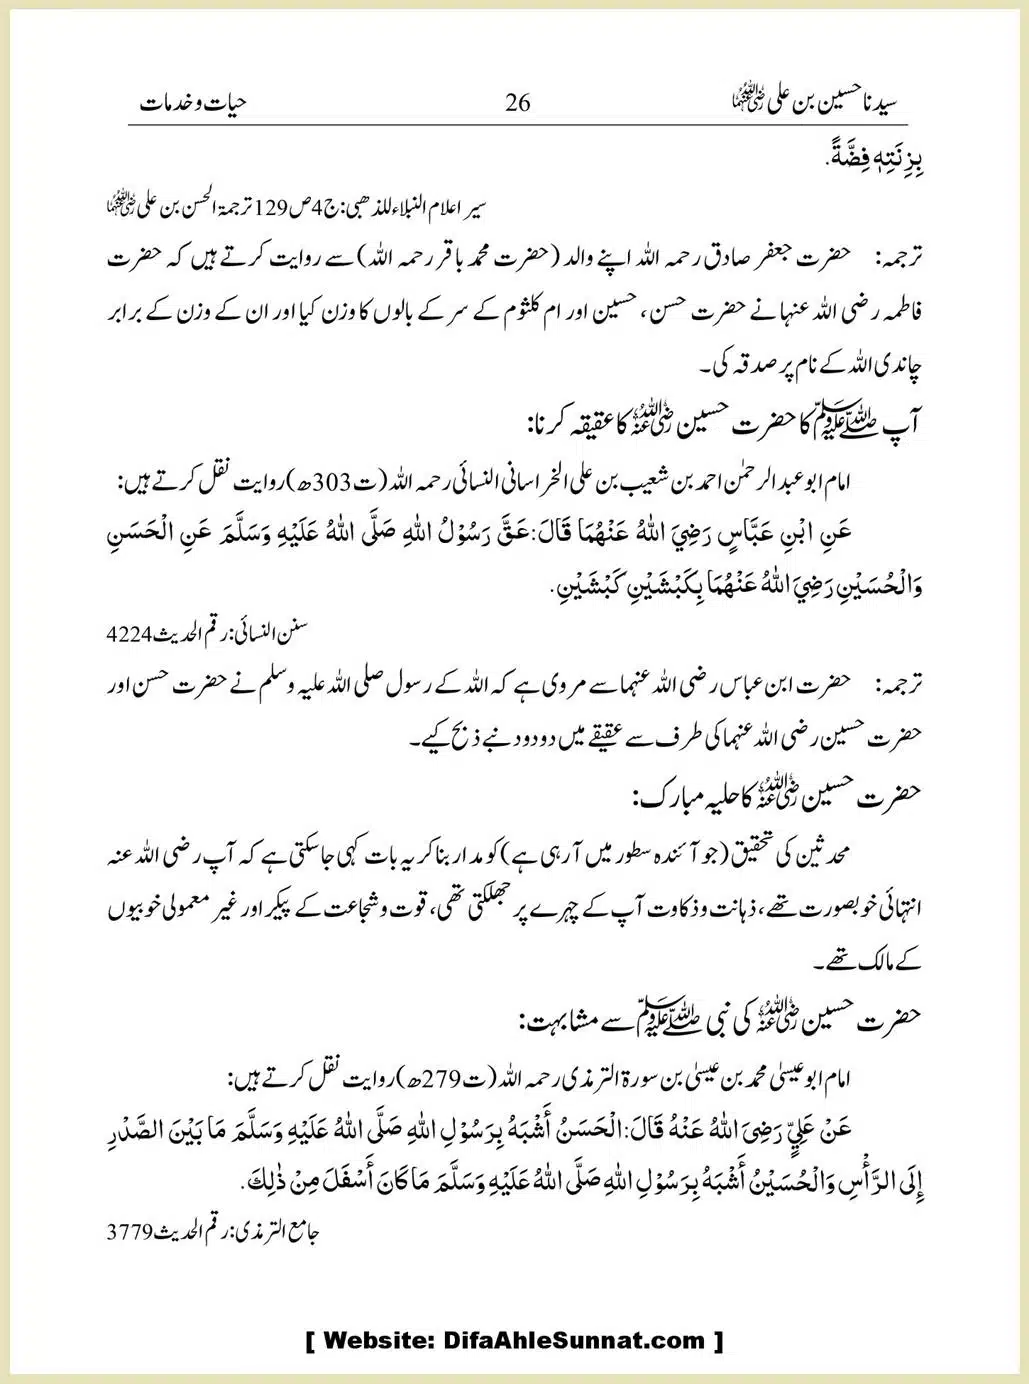 سیدنا حسین بن علی رضی اللہ عنہما 26 حیات و خدمات
بِزِنَتِهٖ فِضَّةً.
سیر اعلام النبلاء للذھبی: ج4ص129 ترجمۃ الحسن بن علی رضی اللہ عنہما
ترجمہ: حضرت جعفر صادق رحمہ اللہ اپنے والد (حضرت محمد باقر رحمہ اللہ) سے روایت کرتے ہیں کہ حضرت
فاطمہ رضی اللہ عنہا نے حضرت حسن، حسین اور ام کلثوم کے سر کے بالوں کا وزن کیا اور ان کے وزن کے برابر
چاندی اللہ کے نام پر صدقہ کی۔
آپ صلی اللہ علیہ وسلم کا حضرت حسین رضی اللہ عنہ کا عقیقہ کرنا:
امام ابو عبد الرحمٰن احمد بن شعیب بن علی الخراسانی النسائی رحمہ اللہ (ت303ھ) روایت نقل کرتے ہیں:
عَنِ ابْنِ عَبَّاسٍ رَضِيَ اللهُ عَنْهُمَا قَالَ: عَقَّ رَسُوْلُ اللهِ صَلَّى اللهُ عَلَيْهِ وَسَلَّمَ عَنِ الْحَسَنِ
وَالْحُسَيْنِ رَضِيَ اللهُ عَنْهُمَا بِكَبْشَيْنِ كَبْشَيْنِ.
سنن النسائی: رقم الحدیث 4224
ترجمہ: حضرت ابن عباس رضی اللہ عنہما سے مروی ہے کہ اللہ کے رسول صلی اللہ علیہ وسلم نے حضرت حسن اور
حضرت حسین رضی اللہ عنہما کی طرف سے عقیقے میں دو دو دنبے ذبح کیے۔
حضرت حسین رضی اللہ عنہ کا حلیہ مبارک:
محدثین کی تحقیق (جو آئندہ سطور میں آ رہی ہے) کو مدار بنا کر یہ بات کہی جا سکتی ہے کہ آپ رضی اللہ عنہ
انتہائی خوبصورت تھے، ذہانت و ذکاوت آپ کے چہرے پر جھلکتی تھی، قوت و شجاعت کے پیکر اور غیر معمولی خوبیوں
کے مالک تھے۔
حضرت حسین رضی اللہ عنہ کی نبی صلی اللہ علیہ وسلم سے مشابہت:
امام ابو عیسیٰ محمد بن عیسیٰ بن سورۃ الترمذی رحمہ اللہ (ت279ھ) روایت نقل کرتے ہیں:
عَنْ عَلِيٍّ رَضِيَ اللهُ عَنْهُ قَالَ: الْحَسَنُ أَشْبَهُ بِرَسُوْلِ اللهِ صَلَّى اللهُ عَلَيْهِ وَسَلَّمَ مَا بَيْنَ الصَّدْرِ
إِلَى الرَّأْسِ وَالْحُسَيْنُ أَشْبَهُ بِرَسُوْلِ اللهِ صَلَّى اللهُ عَلَيْهِ وَسَلَّمَ مَا كَانَ أَسْفَلَ مِنْ ذٰلِكَ.
جامع الترمذی: رقم الحدیث 3779
[ Website: DifaAhleSunnat.com ]